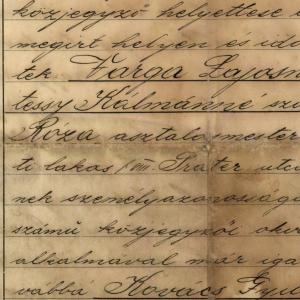 közjegyző helyettese
megirt helyen és idő
tek. Varga Lajosn
tessy Kálmánné sz
Róza asztalosmester
ti lakos (VIII Prater utc
nek személyazonosságá
számú közjegyzői okir
alkalmával már iga
vábbá Kovács Gyu